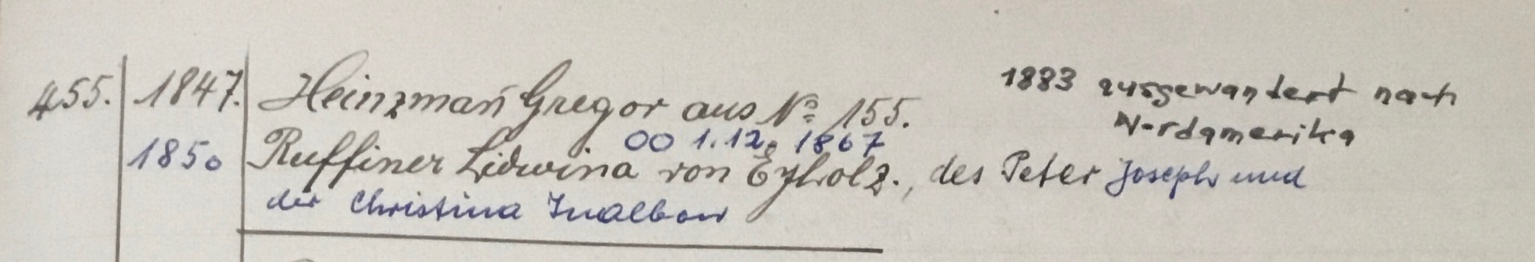 455. 1847. Heinzmañ Gregor aus Nº 155. 1883 ausgewandert nach
Nordamerika
OO 1.12. 1867
1850 Ruffiner Lidwina von Eyholz., des Peter Joseph und
der Christina Inalbon